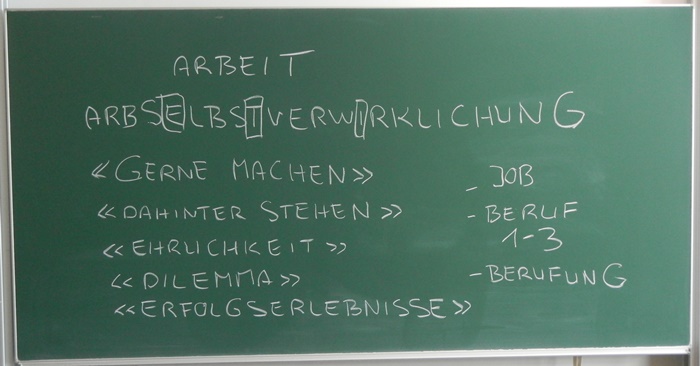 ARBEIT
ARBSELBSTVERWIRKLICHUNG
«GERNE MACHEN»
«DAHINTER STEHEN»
«EHRLICHKEIT»
«DILEMMA»
«ERFOLGSERLEBNISSE»
- JOB
- BERUF
1-3
- BERUFUNG